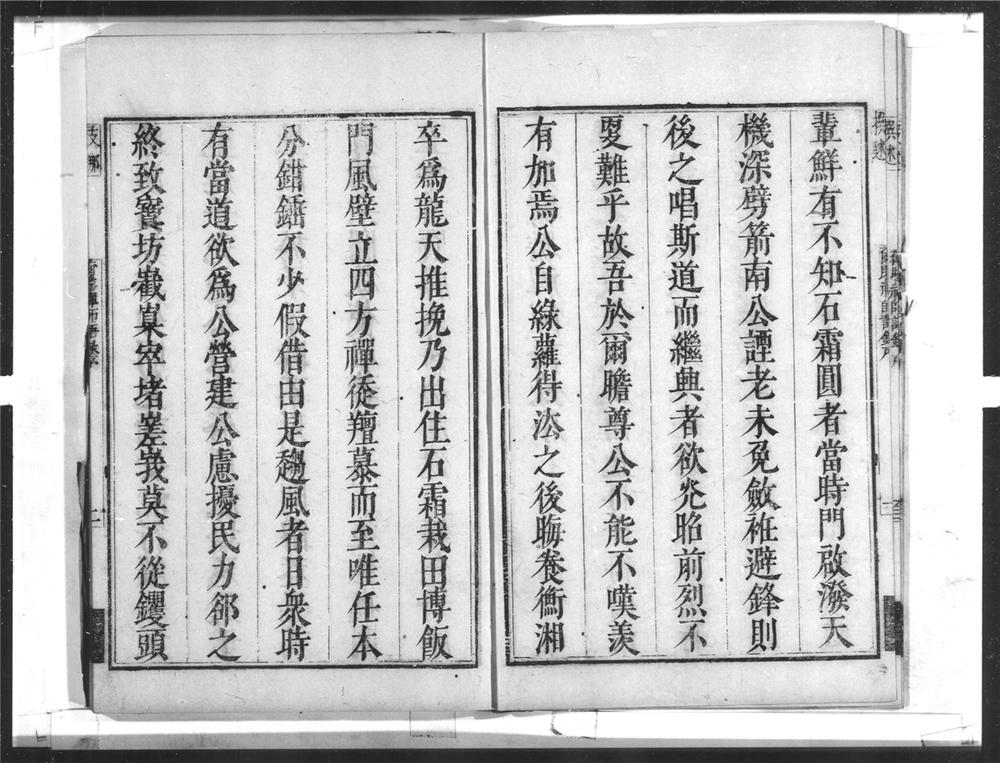 輩鮮有不知石霜圓者當時門啟潑天
機深劈箭南公諲老未免斂袵避鋒則
後之唱斯道而繼興者欲光昭前烈不
戛難乎故吾於爾瞻尊公不能不嘆羨
有加焉公自綠蘿得法之後晦養衡湘
卒爲龍天推挽乃出住石霜栽田博飯
門風壁立四方禪徒羶慕而至唯任本
分鉗鎚不少假借由是趨風者日衆時
有當道欲爲公營建公慮擾民力郤之
終致寶坊巀嶪窣堵嵳峩莫不從钁頭
支那
撰述